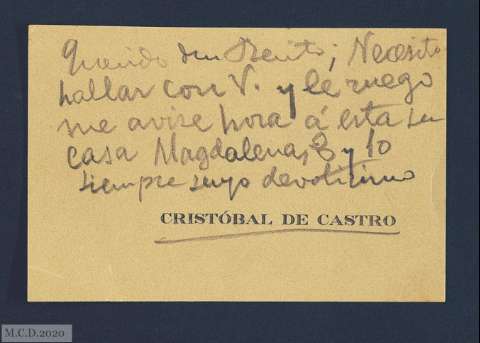 Querido don Benito; Necesito
hallar con V. y le ruego
me avise hora á esta su
casa Magdalena, 8 y 10
siempre suyo devotísimo
CRISTÓBAL DE CASTRO
M.C.D.2020